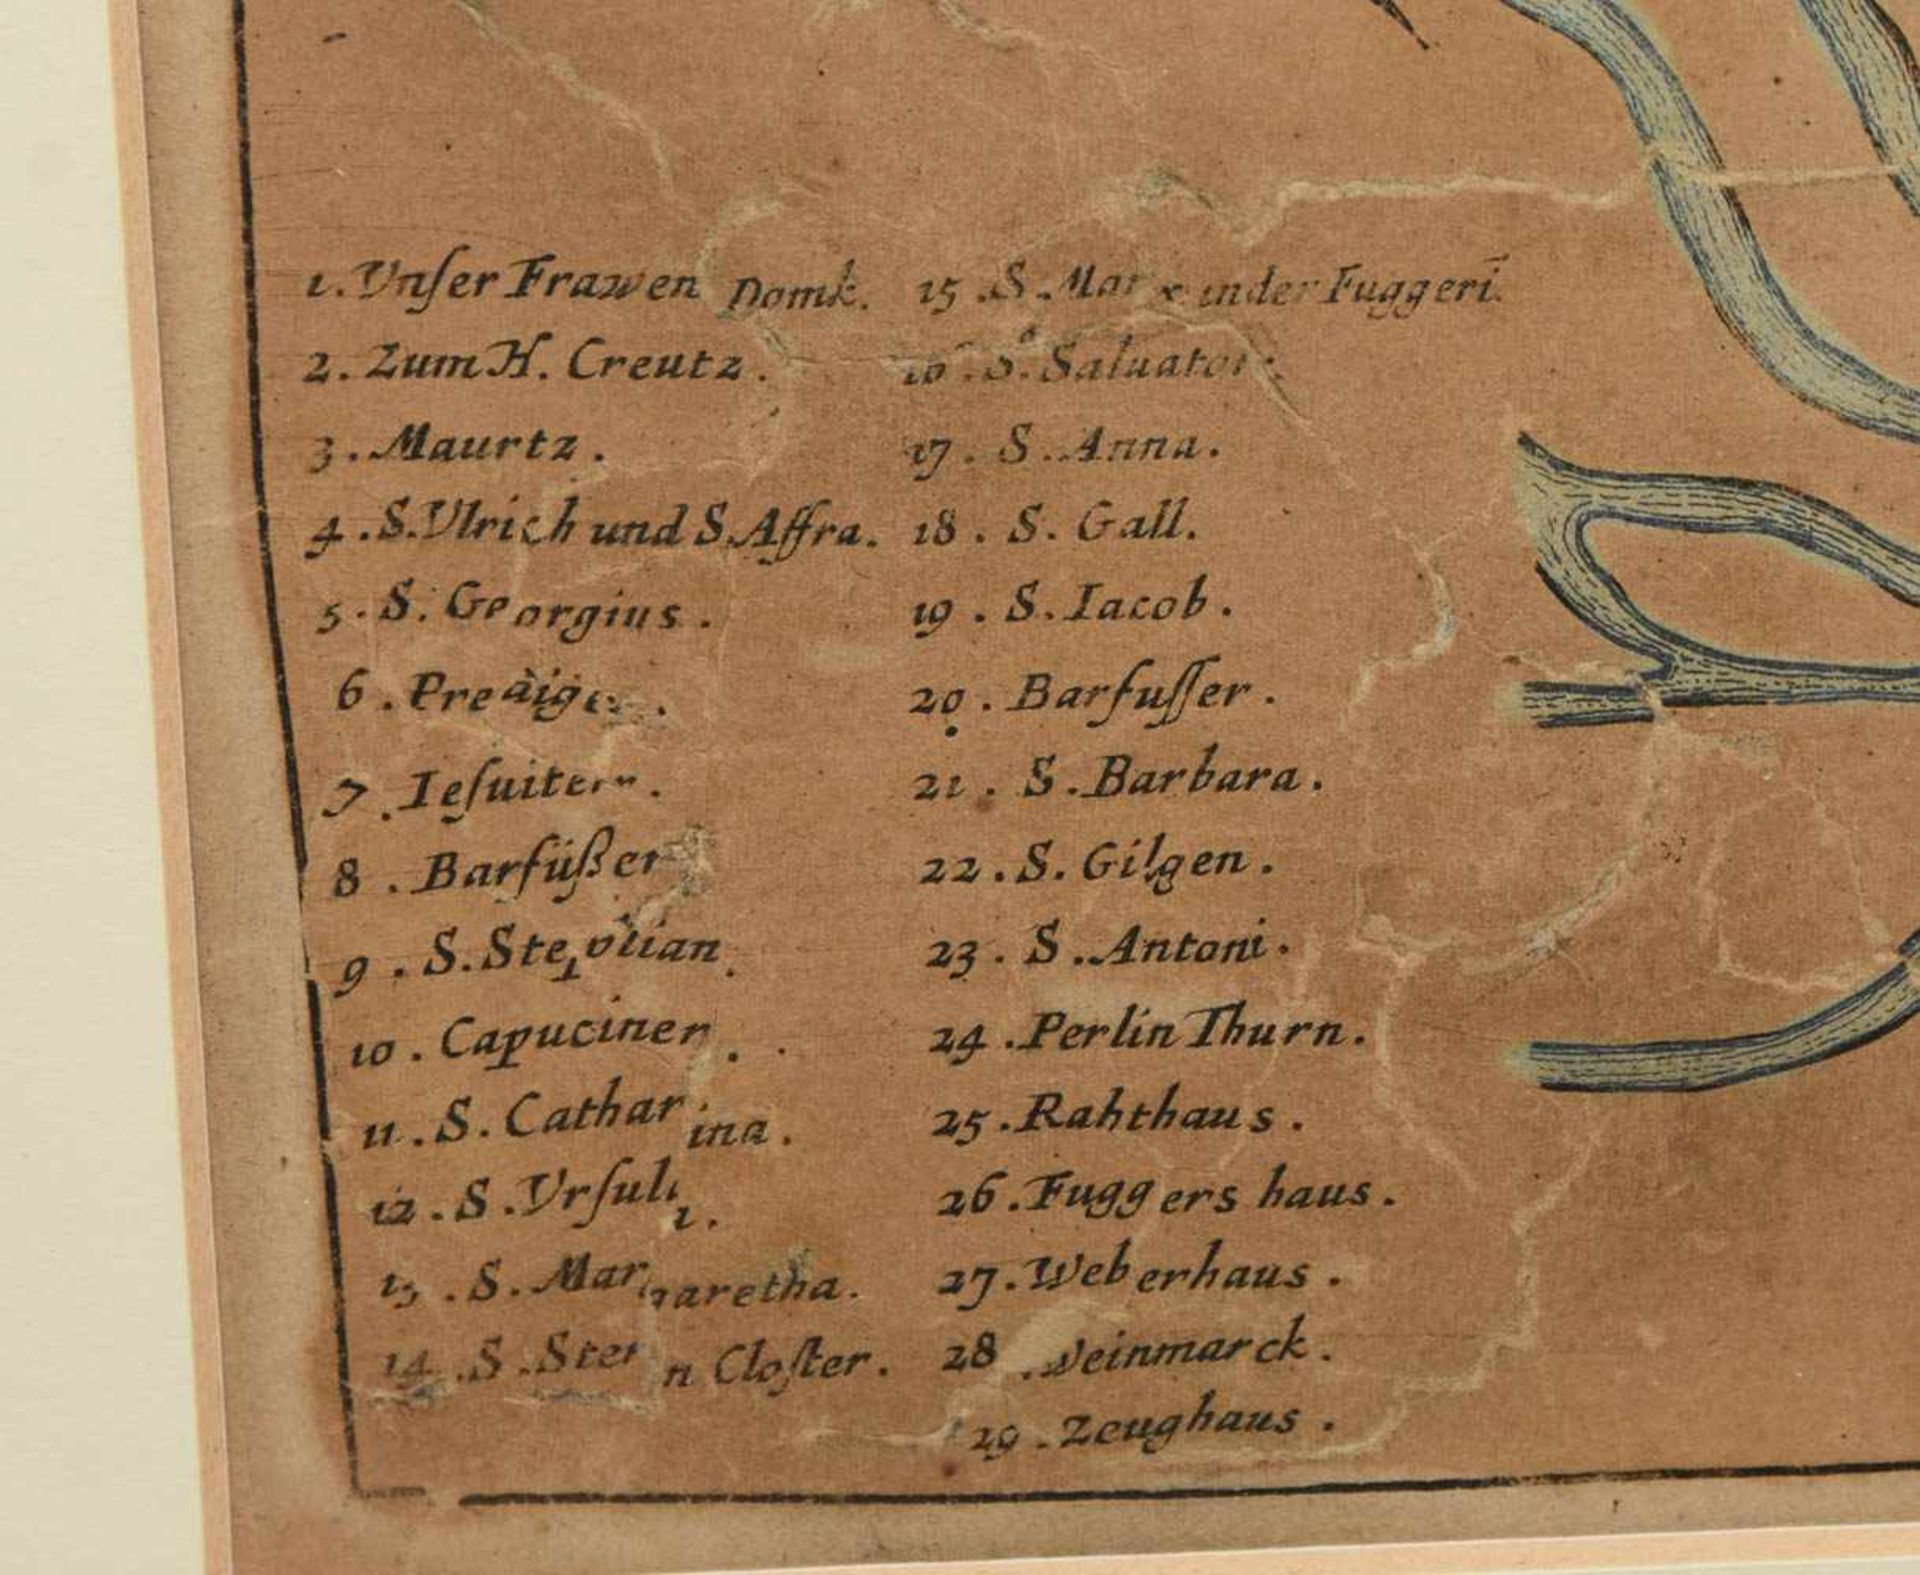 1. Vnſer Frawen Domk.
2. Zum H. Creutz.
3. Maurtz.
4. S. Vlrich und S. Affra.
5. S. Georgius.
6. Prediger.
7. Ieſuitern.
8. Barfüßer
9. S.
10. Capuciner.
11. S. Catharina.
12. S.
13. S. Margaretha.
14. S. Stern Cloſter.
15. S. Marx inder Fuggerī.
16. S. Saluator.
17. S. Anna.
18. S. Gall.
19. S. Iacob.
20. Barfuſſer.
21. S. Barbara.
22. S. Gilgen.
23. S. Antoni.
24. Perlin Thurn.
25. Rahthaus.
26. Fuggers haus.
27. Weberhaus.
28. Weinmarck.
29. Zeughaus.